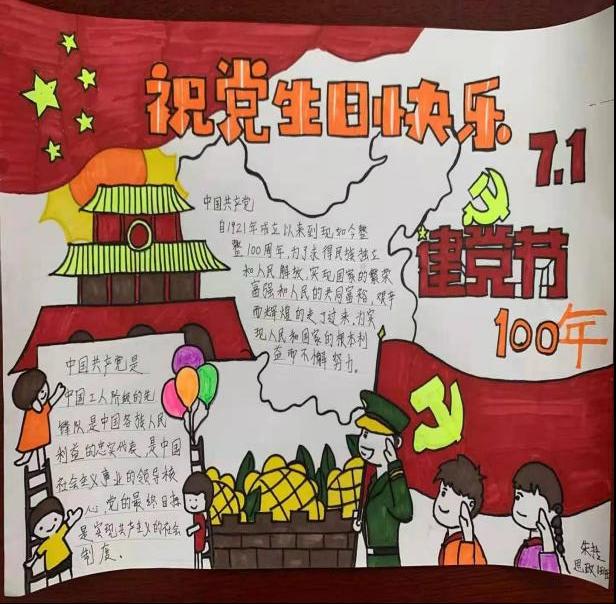 祝党生日快乐
7.1
建党节
100年
中国共产党
自1921年成立以来到现如今整
整100周年,为了求得民族独立
和人民解放,实现国家的繁荣
富强和人民的共同富裕,艰辛
而辉煌的走了过来,为实
现人民和国家的根本利
益而不懈努力。
中国共产党是
中国工人阶级的先
锋队是中国各族人民
利益的忠实代表,是中国
社会主义事业的领导核
心,党的最终目标
是实现共产主义的社会
制度。
思政